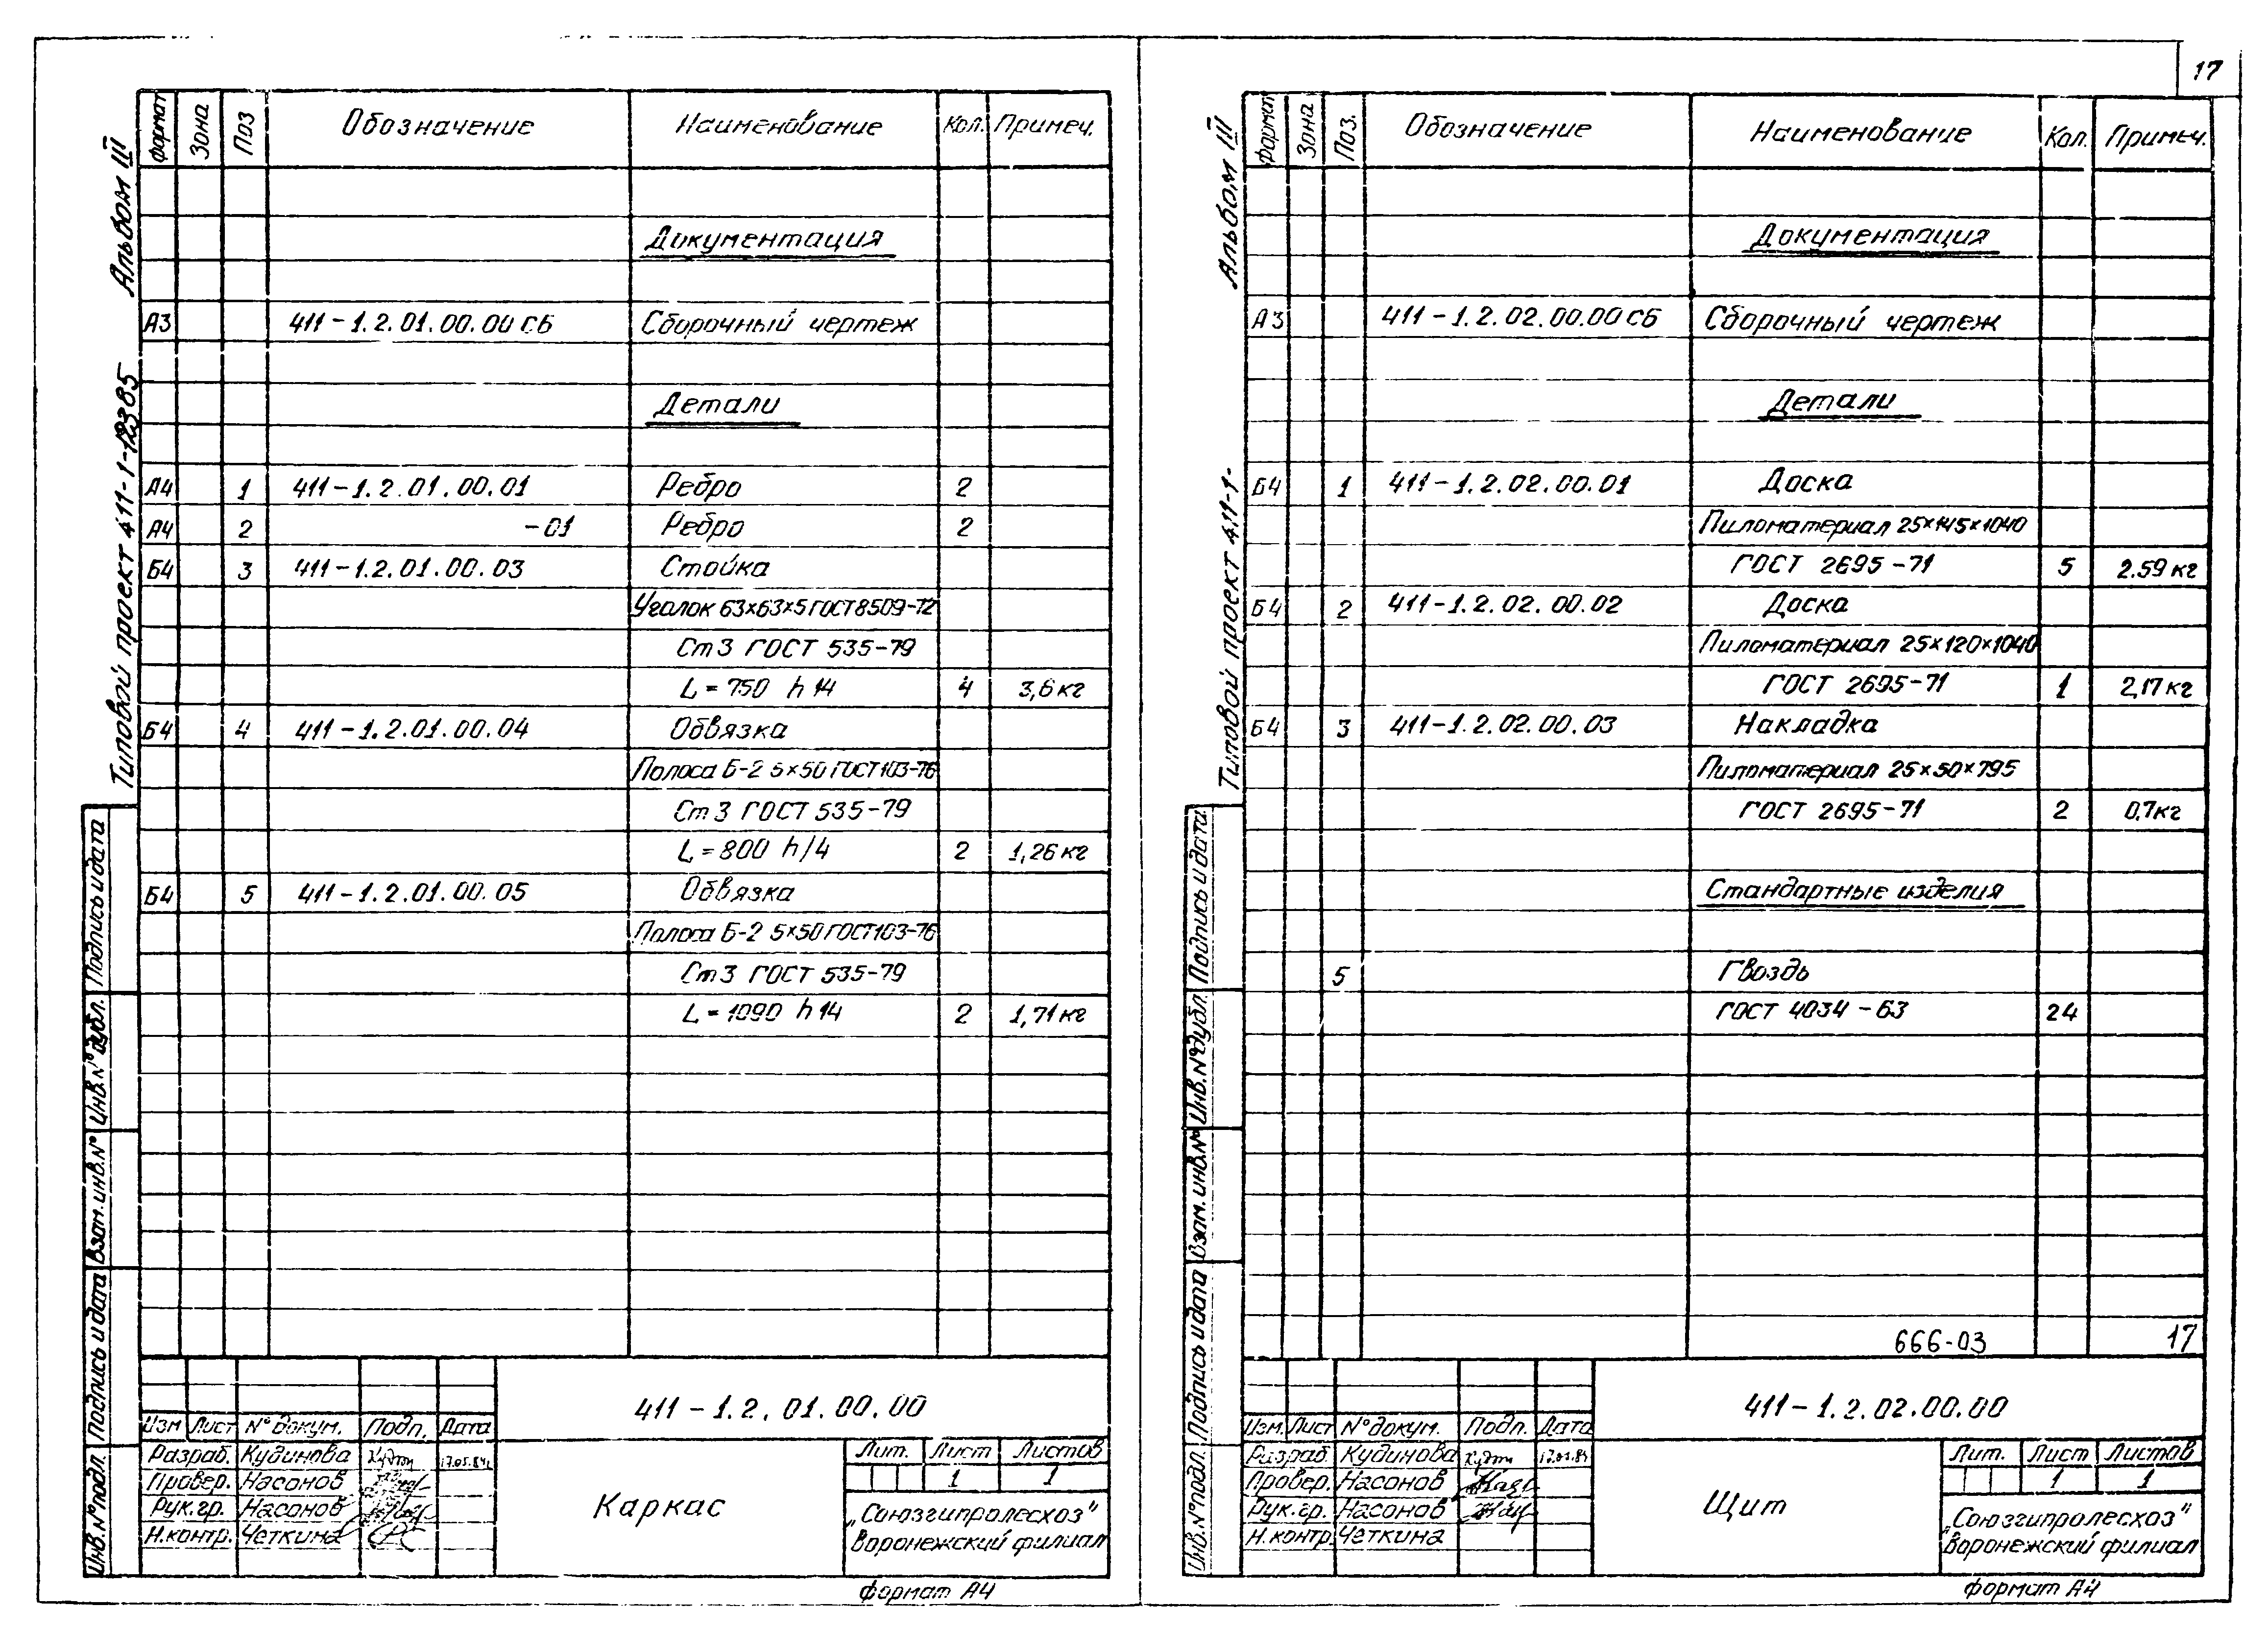 17
Альбом III
Типовой проект 411-1-123.85
формат Зона Поз Обозначение Наименование Кол. Примеч.
Документация
А3 411-1.2.01.00.00 СБ Сборочный чертеж
Детали
А4 1 411-1.2.01.00.01 Ребро 2
А4 2 -01 Ребро 2
Б4 3 411-1.2.01.00.03 Стойка
Уголок 63×63×5 ГОСТ 8509-72
Ст3 ГОСТ 535-79
L=750 h14 4 3,6 кг
Б4 4 411-1.2.01.00.04 Обвязка
Полоса Б-2 5×50 ГОСТ 103-76
Ст3 ГОСТ 535-79
L=800 h14 2 1,26 кг
Б4 5 411-1.2.01.00.05 Обвязка
Полоса Б-2 5×50 ГОСТ 103-76
Ст3 ГОСТ 535-79
L=1090 h14 2 1,71 кг
Инв.№подл. Подпись и дата Взам.инв.№ Инв.№дубл. Подпись и дата
411-1.2.01.00.00
Изм Лист №докум. Подп. Дата
Разраб. Кудинова 17.05.84г
Провер. Насонов
Рук.гр. Насонов
Н.контр. Четкина
Каркас
Лит. Лист Листов
1 1
„Союзгипролесхоз"
Воронежский филиал
формат А4
Альбом III
Типовой проект 411-1-
формат Зона Поз. Обозначение Наименование Кол. Примеч.
Документация
А3 411-1.2.02.00.00 СБ Сборочный чертеж
Детали
Б4 1 411-1.2.02.00.01 Доска
Пиломатериал 25×145×1040
ГОСТ 2695-71 5 2.59 кг
Б4 2 411-1.2.02.00.02 Доска
Пиломатериал 25×120×1040
ГОСТ 2695-71 1 2,17 кг
Б4 3 411-1.2.02.00.03 Накладка
Пиломатериал 25×50×795
ГОСТ 2695-71 2 0,7кг
Стандартные изделия
5 Гвоздь
ГОСТ 4034-63 24
666-03 17
Инв.№подл. Подпись и дата Взам.инв.№ Инв.№дубл. Подпись и дата
411-1.2.02.00.00
Изм. Лист №докум. Подп. Дата
Разраб. Кудинова 17.05.84
Провер. Насонов
Рук.гр. Насонов
Н.контр. Четкина
Щит
Лит. Лист Листов
1 1
„Союзгипролесхоз"
Воронежский филиал
формат А4